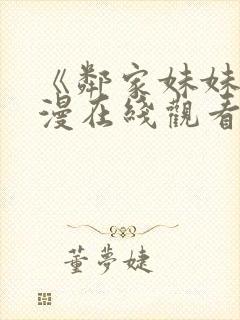 《鄰家妹妹
漫在綫觀看
董夢婕